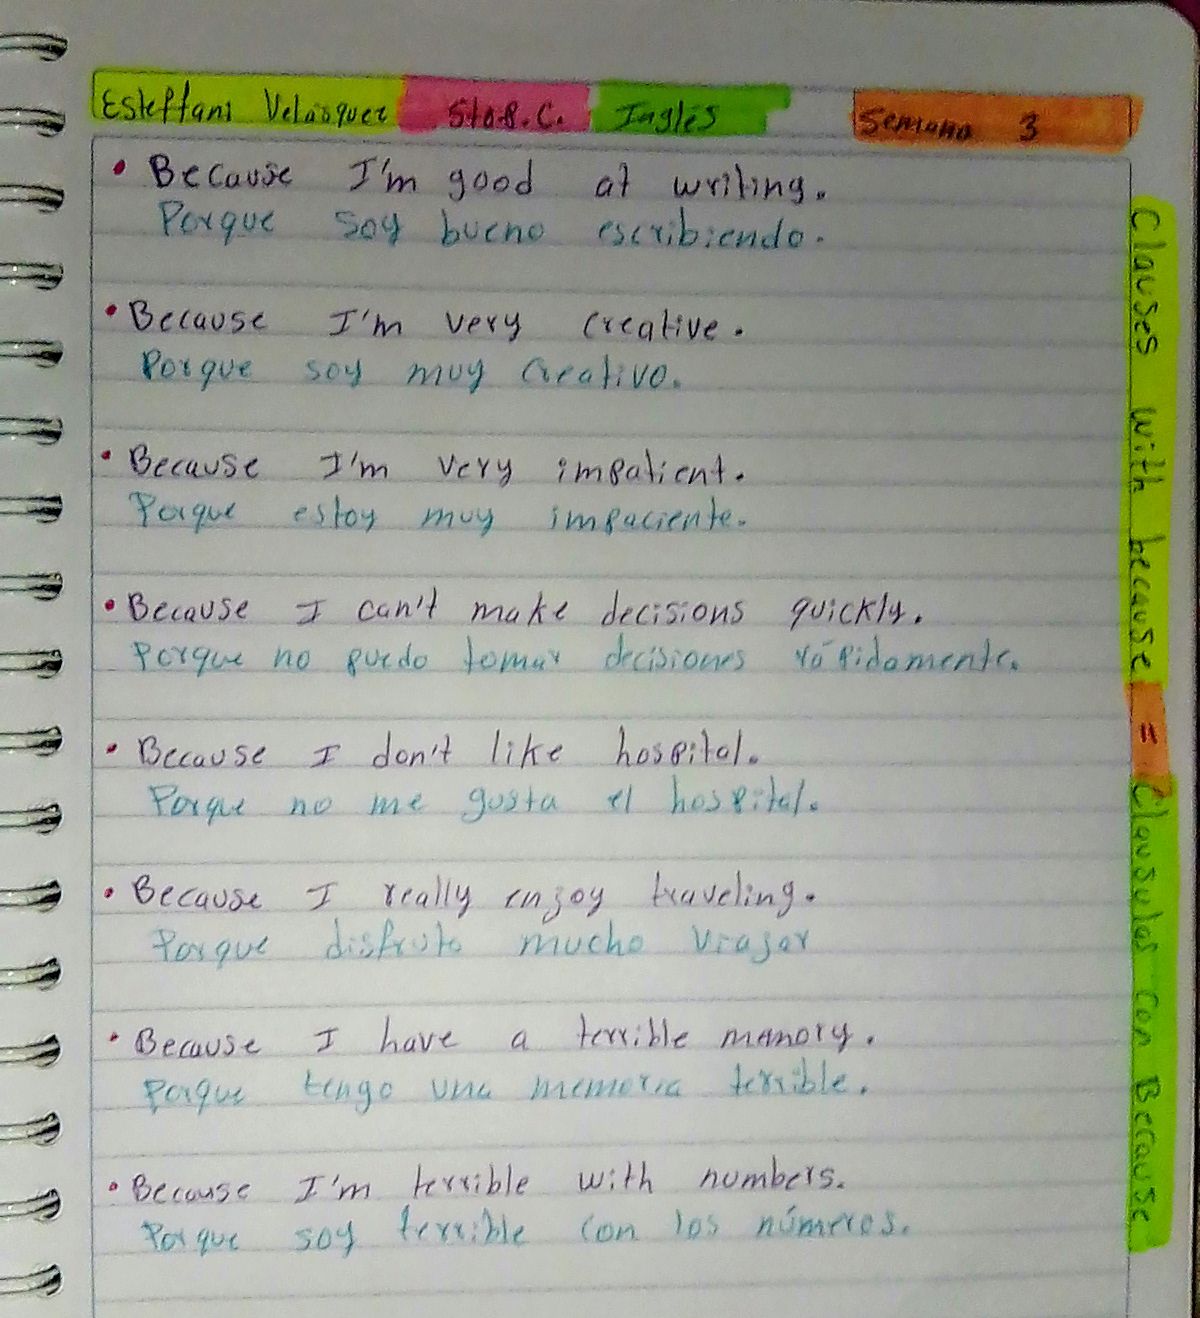 Esteffani Velásquez 5to B.C. Inglés Semana 3
• Because I'm good at writing.
Porque soy bueno escribiendo.
• Because I'm very creative.
Porque soy muy creativo.
• Because I'm very impatient.
Porque estoy muy impaciente.
• Because I can't make decisions quickly.
Porque no puedo tomar decisiones rápidamente.
• Because I don't like hospital.
Porque no me gusta el hospital.
• Because I really enjoy traveling.
Porque disfruto mucho viajar
• Because I have a terrible memory.
Porque tengo una memoria terrible.
• Because I'm terrible with numbers.
Porque soy terrible con los números.
Clauses with because = Clausulas con Because